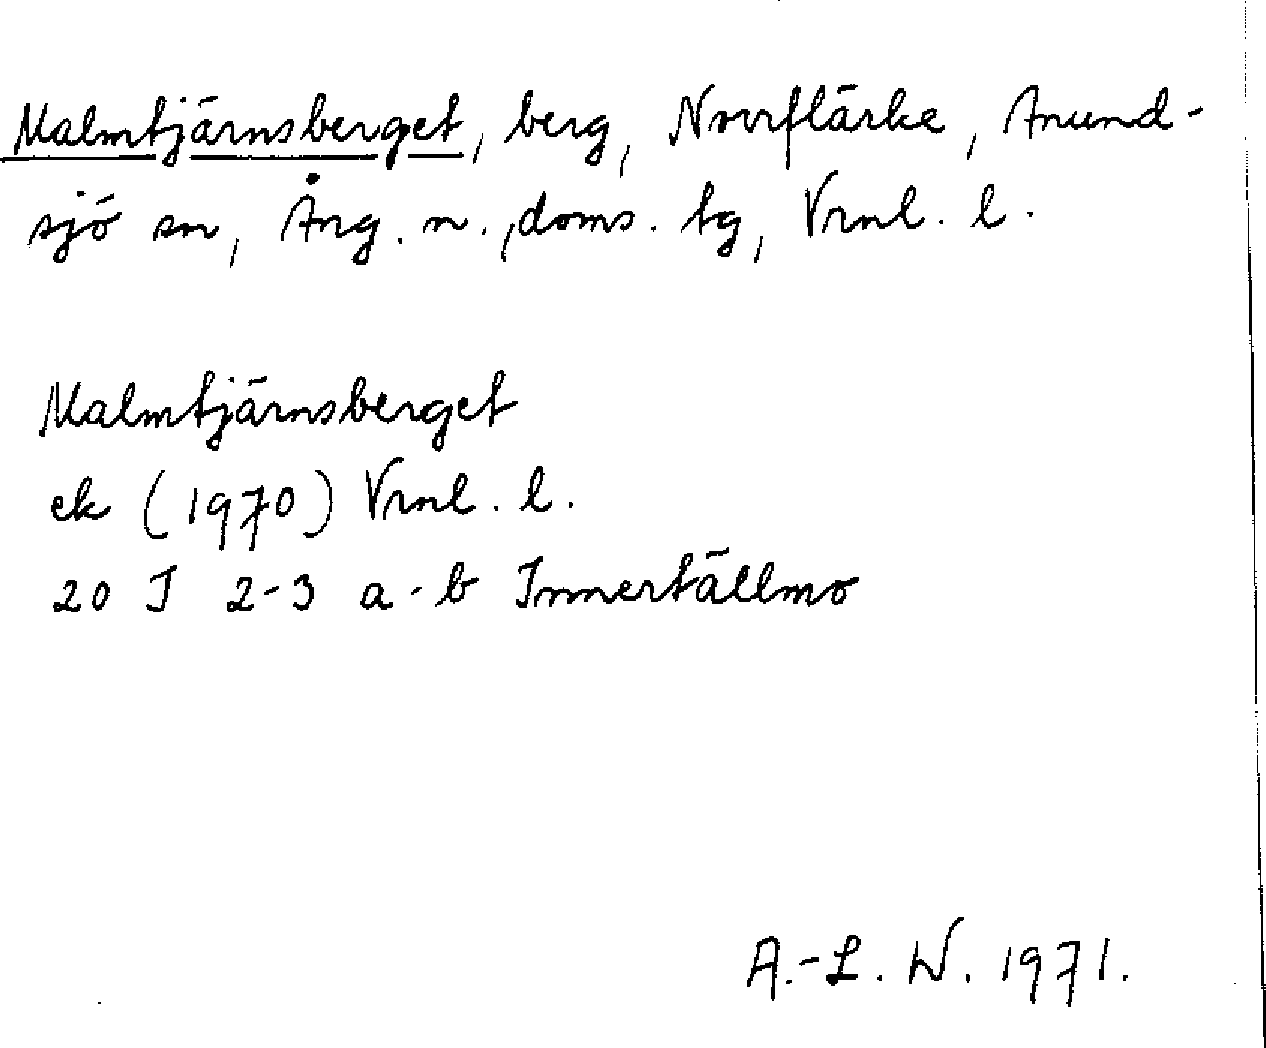 Malmtjärnsberget, berg, Norrflärke, Anund-
sjö sn, Ång. n., doms. tg, Vrnl. l.
Malmtjärnsberget
ek (1970) Vrnl. l.
20 J 2-3 a-b Innertällmo
A.-L. W. 1971.